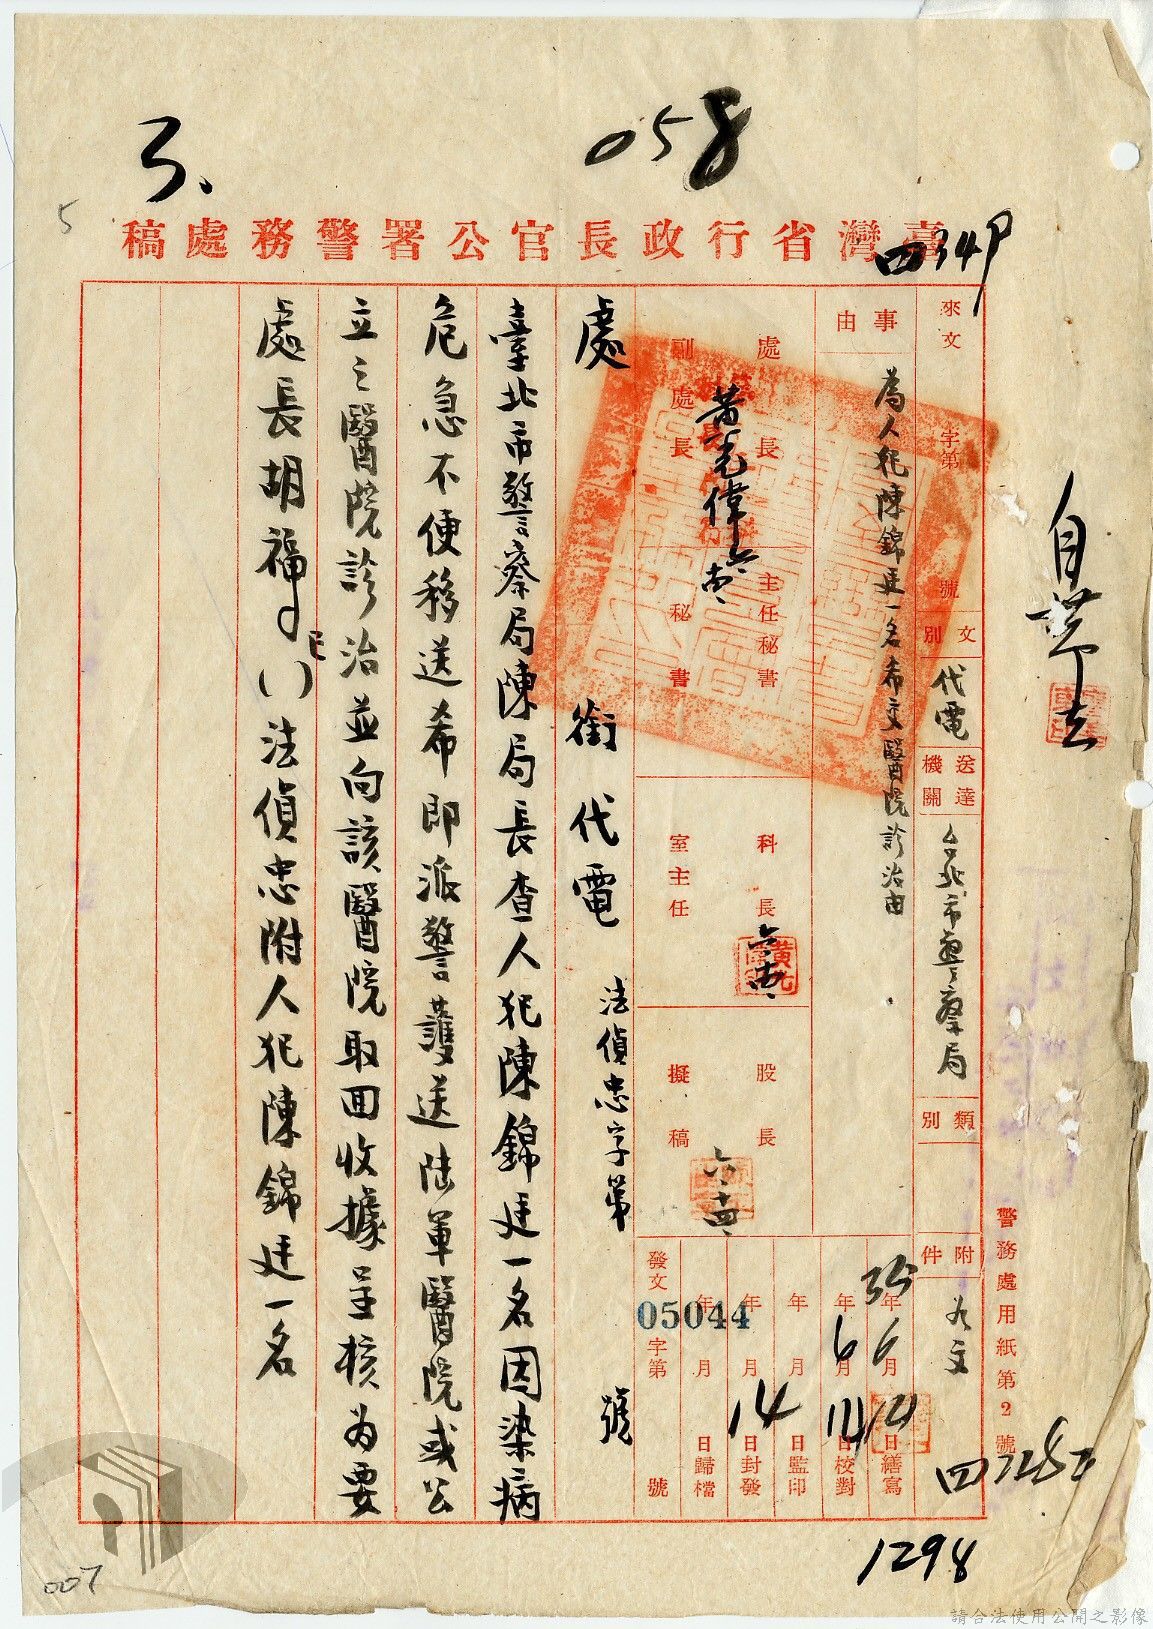 3、
058
5
臺灣省行政長官公署警務處稿
來文
字第
號
文別
代電
送達機關
台北市警察局
類別
附件
事由
為人犯陳錦廷一名希交醫院診治由
處長
主任秘書
科長
股長
副處長
秘書
室主任
擬稿
黃光偉
六
六
六、十四、
35年6月14日繕寫
年6月14日校對
年月日監印
年月14日封發
年月日歸檔
發文
字第
號
05044
處銜代電
法偵忠字第
號
臺北市警察局陳局長查人犯陳錦廷一名因染病
危急不便移送希即派警護送陸軍醫院或公
立之醫院診治並向該醫院取回收據呈核為要
處長胡福
()法偵忠附人犯陳錦廷一名
警務處用紙第2號
1298
007
請合法使用公開之影像